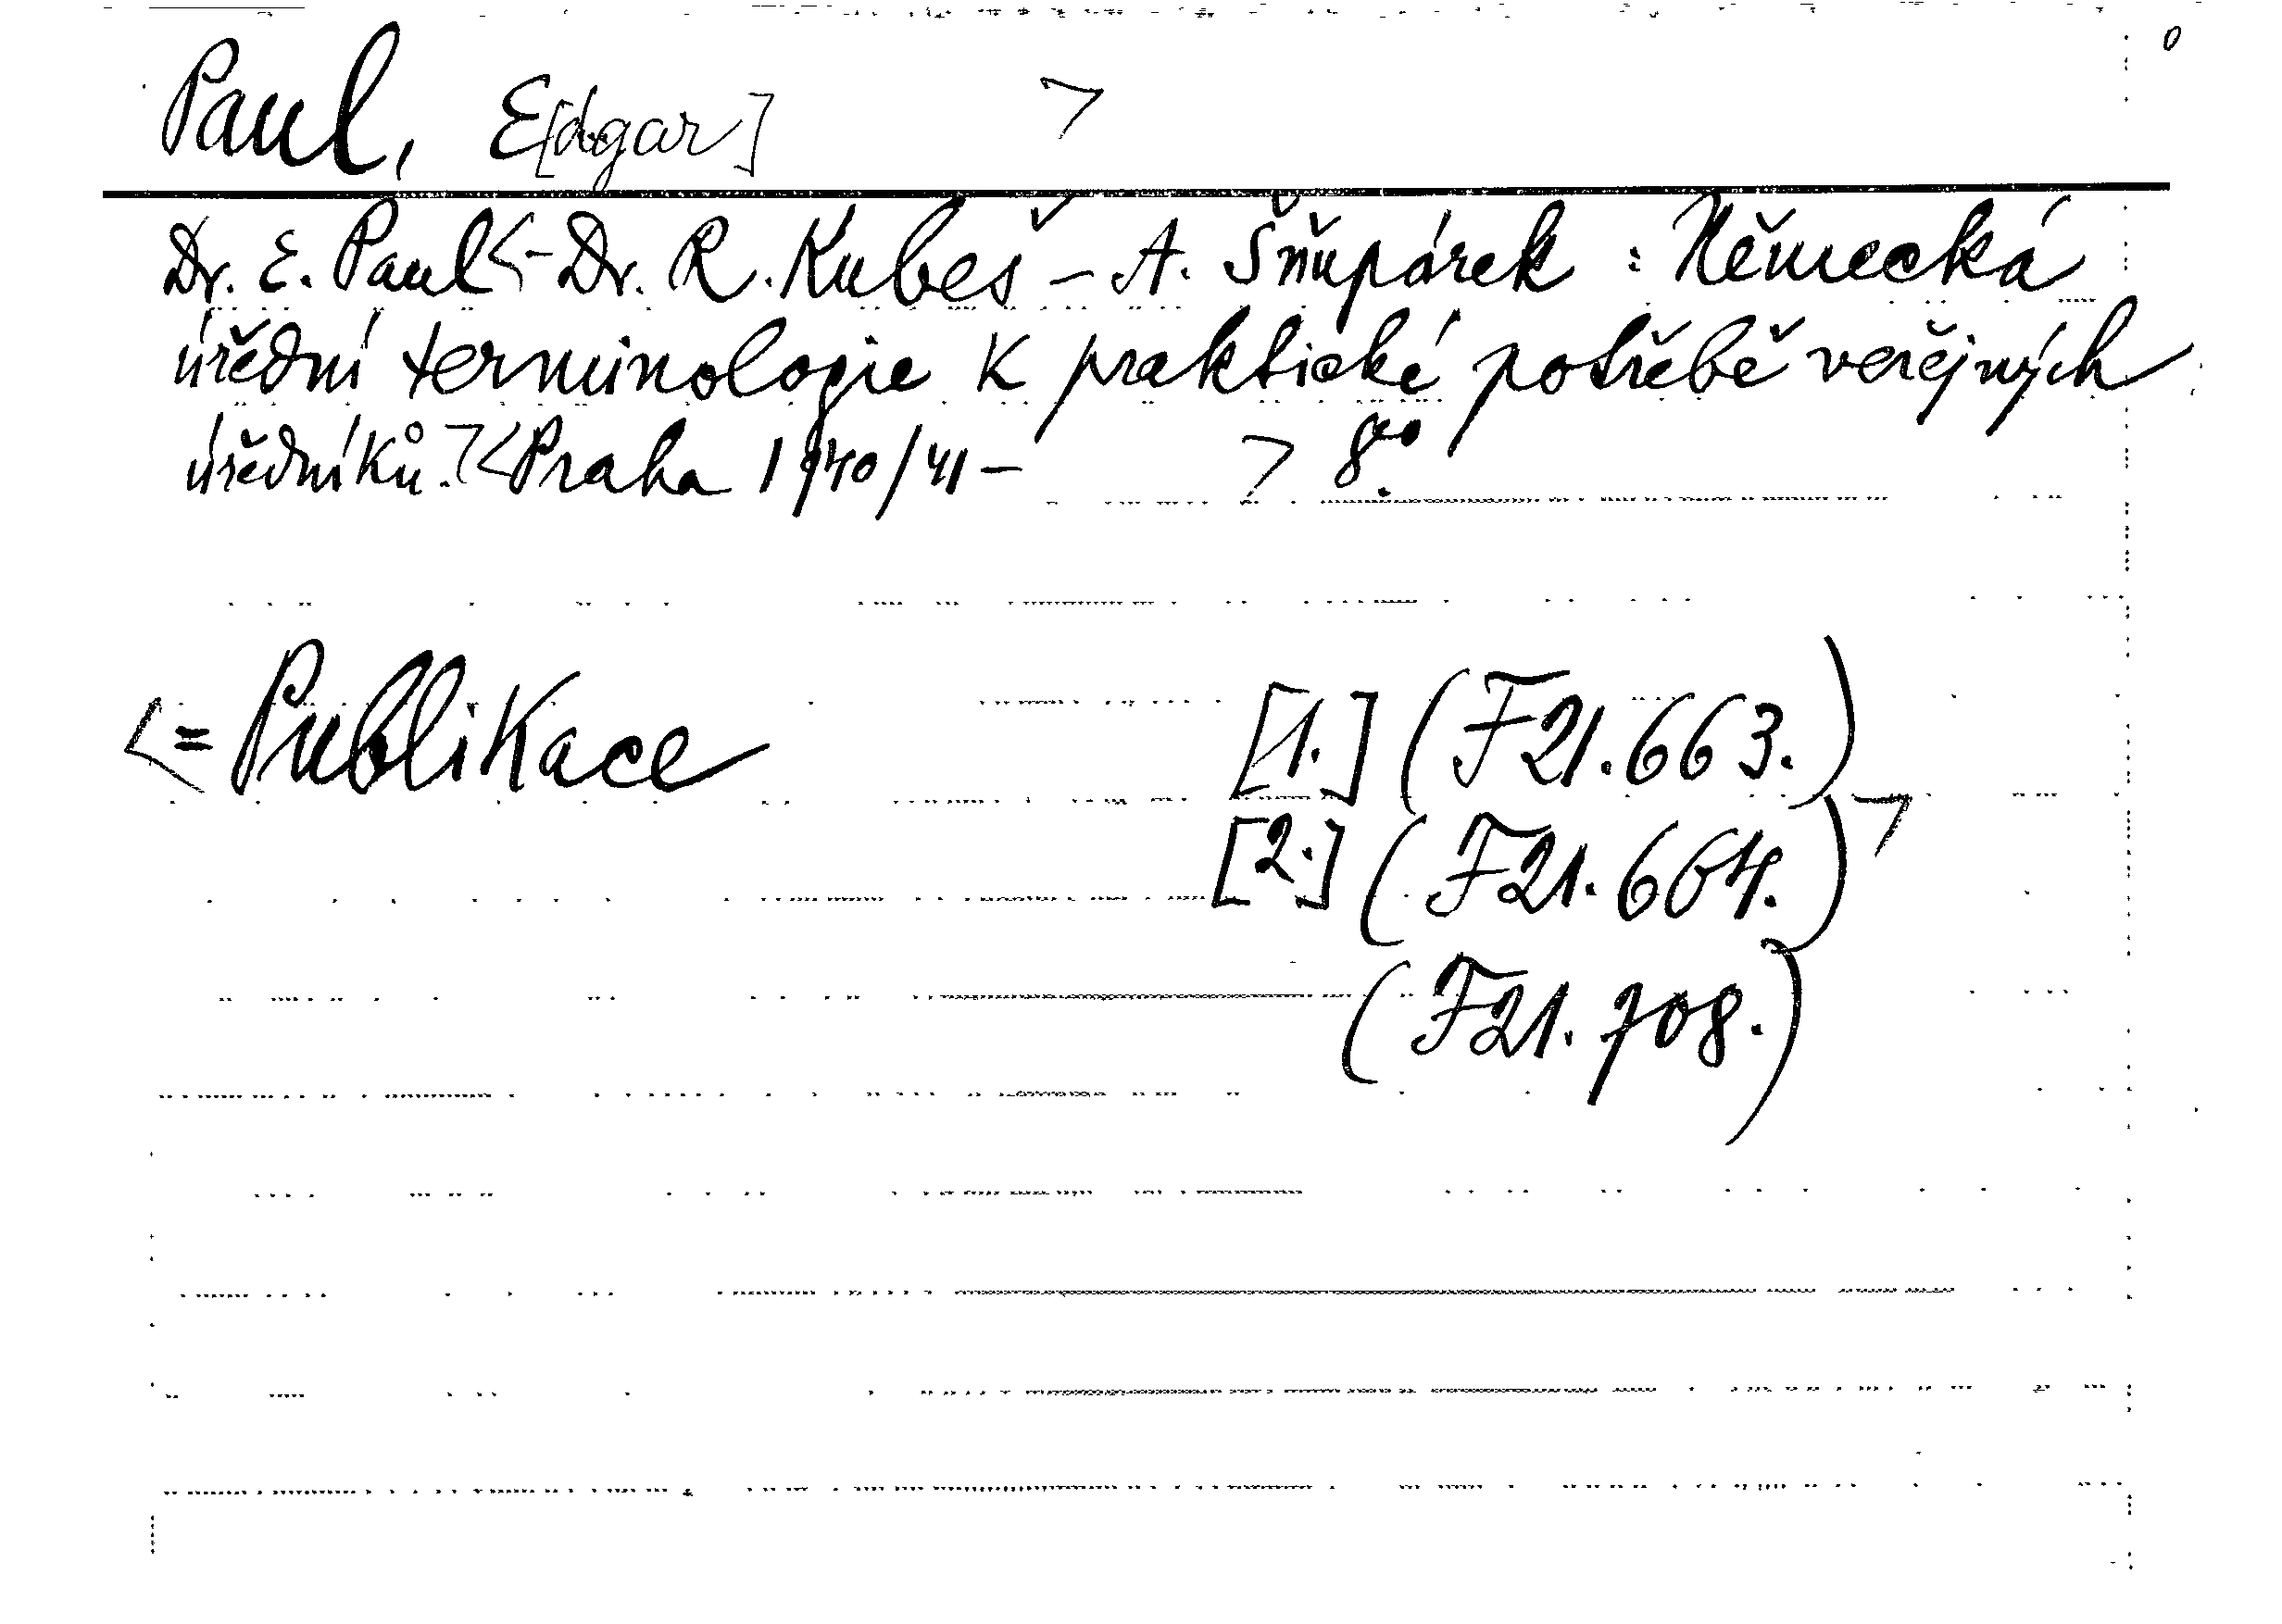 Paul, E[dgar] >
Dr. E. Paul <- Dr. R. Kubeš - A. Šňupárek : Německá
úřední terminologie k praktické potřebě veřejných
úředníků. >< Praha 1940/41 - > 8°.
<= Publikace [1.] (F21.663.)
[2.] (F21.664.) >
(F21.708.)